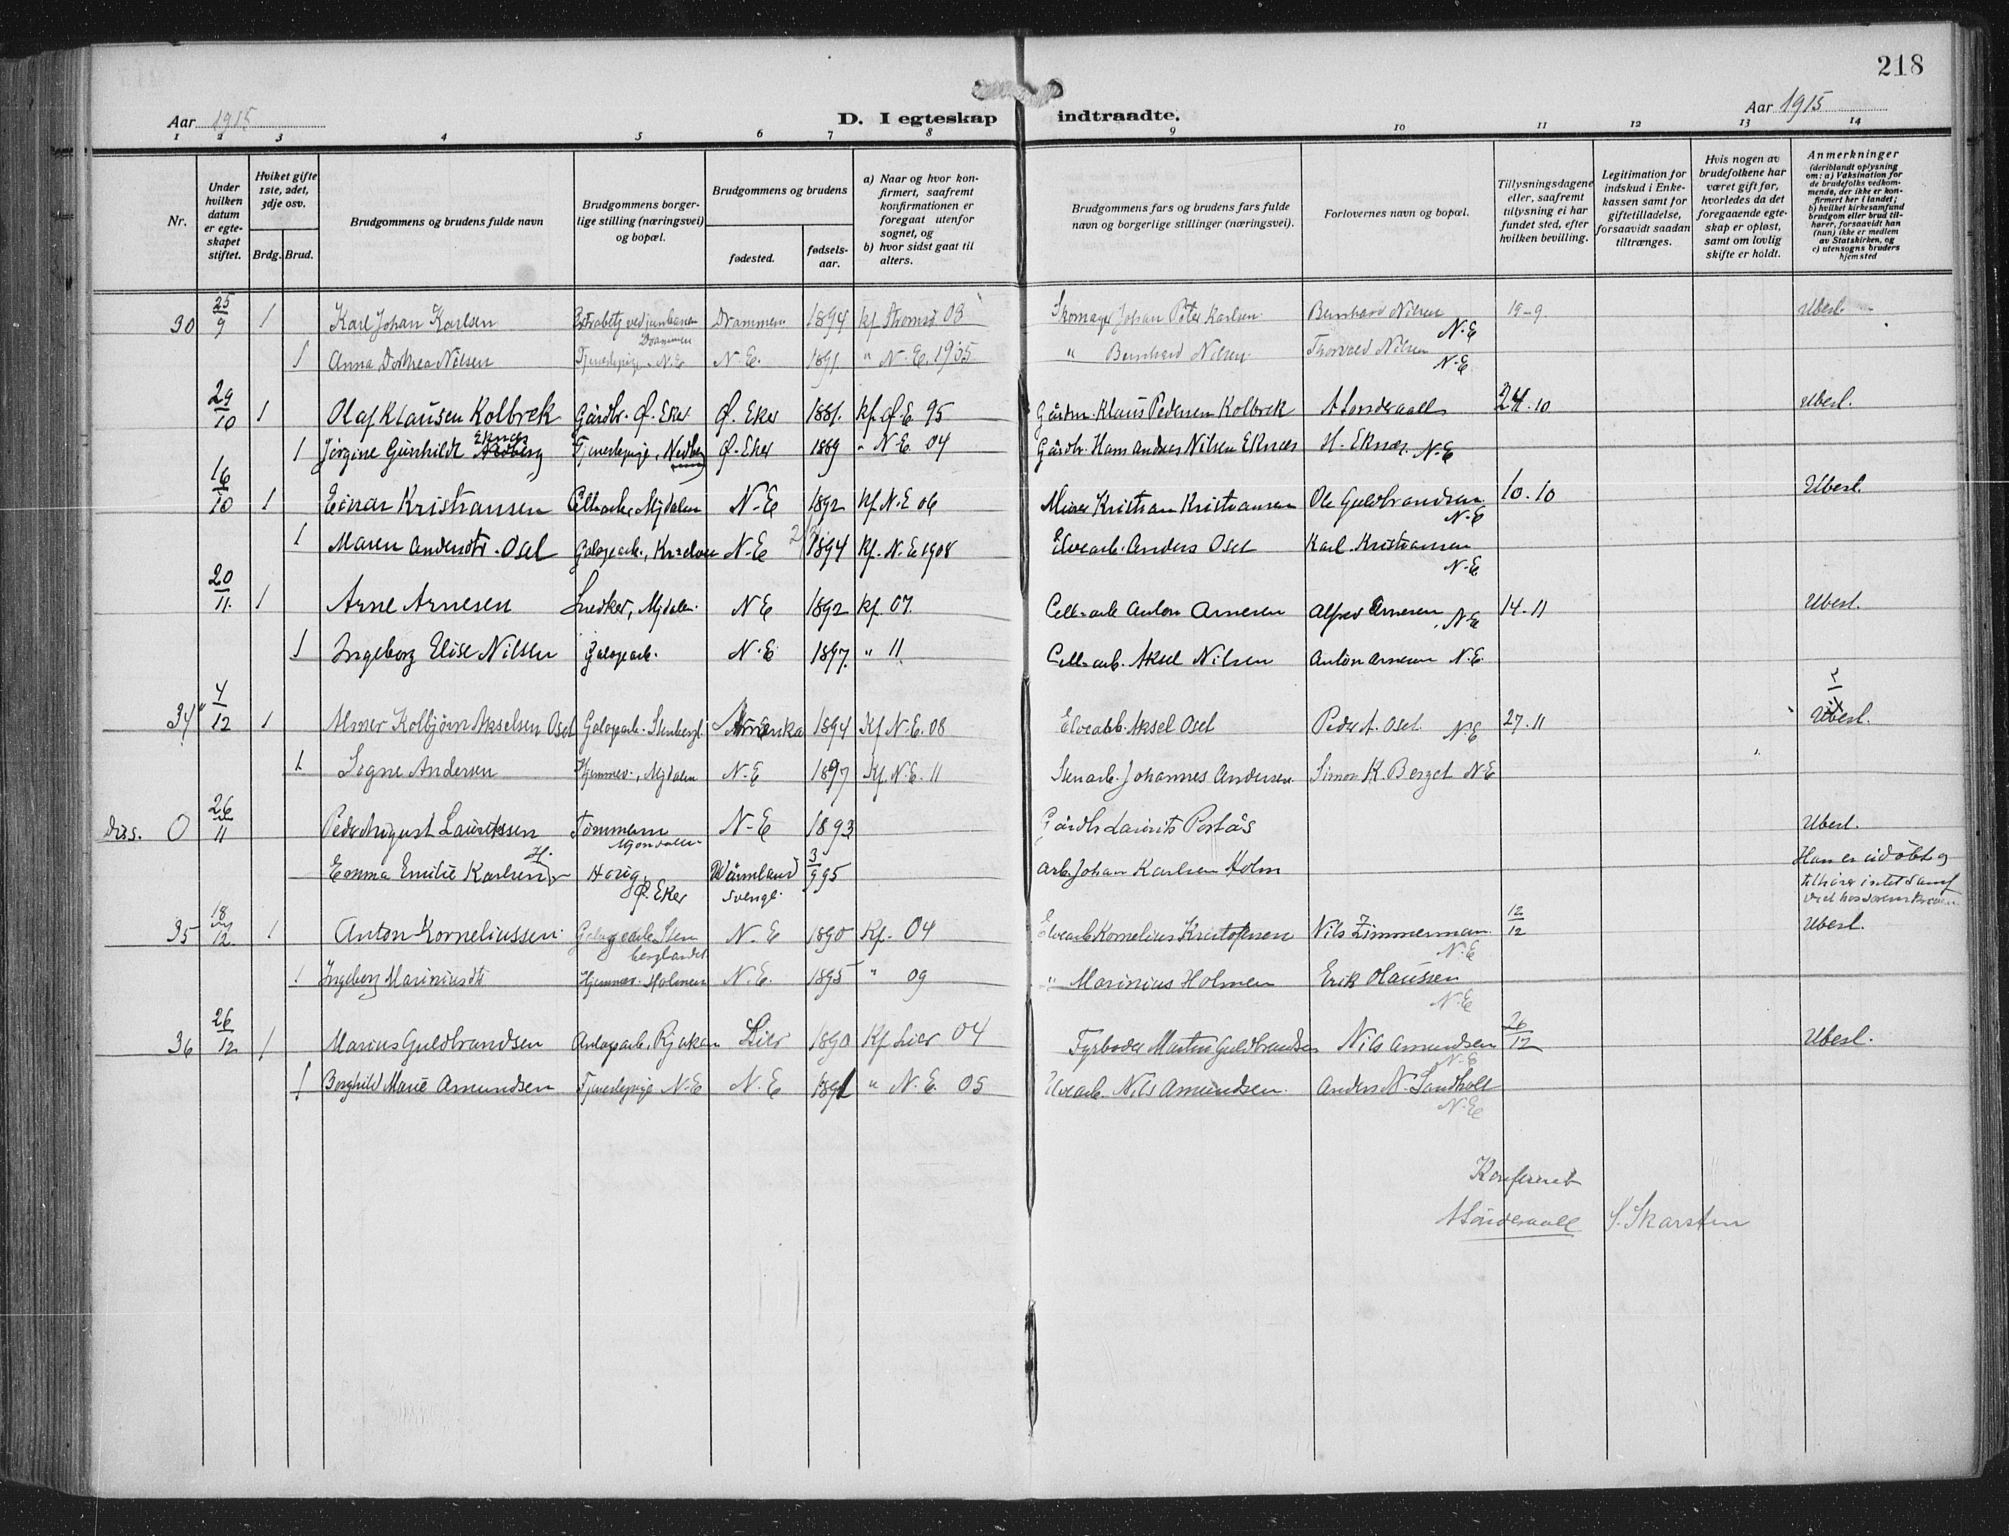 218
Aar 1915
D. I egteskap indtraadte.
Aar 1915
1 2 3 4 5 6 7 8 9 10 11 12 13 14
Nr.
Under hvilken datum er egteskapet stiftet.
Hviket gifte 1ste, 2det, 3dje osv.
Brdg. Brud.
Brudgommens og brudens fulde navn
Brudgommens borgerlige stilling (næringsvei) og bopæl.
Brudgommens og brudens
fødested.
fødselsaar.
a) Naar og hvor konfirmert, saafremt konfirmationen er foregaat utenfor sognet, og
b) hvor sidst gaat til alters.
Brudgommens fars og brudens fars fulde navn og borgerlige stillinger (næringsvei).
Forlovernes navn og bopæl.
Tillysningsdagene eller, saafremt tillysning ei har fundet sted, efter hvilken bevilling.
Legitimation for indskud i Enkekassen samt for giftetilladelse, forsaavidt saadan tiltrænges.
Hvis nogen av brudefolkene har været gift før, hvorledes da det foregaaende egteskap er opløst, samt om lovlig skifte er holdt.
Anmerkninger (deriblandt oplysning om: a) Vaksination for de brudefolks vedkommende, der ikke er konfirmert her i landet; b) hvilket kirkesamfund brudgom eller brud tilhører, forsaavidt han (hun) ikke er medlem av Statskirken, og c) utensogns bruders hjemsted
30 25/9 1 Karl Johan Karlsen ved jernbanen Drammen Drammen 1894 kf. Strømsø 08 Skomager Johan Peter Karlsen Bernhard Nilsen N.E 19-9 Ubesl.
1 Anna Dorthea Nilsen Tjenestepige N.E N.E. 1891. " N.E. 1905 " Bernhard Nilsen Thorvald Nilsen N.E
29/10 1 Olaf Klausen Kolbrek Gårdbr. Ø. Eker Ø. Eker 1881. kf. Ø.E 95 Gårdm. Klaus Pedersen Kolbrek A Sønderaall 24.10 Ubesl.
1 Jørgine Gunhilde Eknes Tjenestepige, Nedberg Ø. Eker 1889 " N.E. 04 Gårdbr. Hans Andreas Nilsen Eknæs H. Eknær N.E
16/10 1 Einar Kristiansen Cell.arb. Mjdalen N.E 1892 Kf. N.E 06 Murer Kristian Kristiansen Ole Guldbrandsen N.E 10.10 Ubesl.
1 Maren Andersdtr. Osel Galogearb., N.E 1894 Kf. N.E 1908 Elvearb. Anders Osel Karl Kristiansen N.E.
20/11. 1 Arne Arnesen Snedker, Mjdalen. N.E 1892 kf. 07. Cell-arb Anton Arnesen Alfred Arnesen, N.E 14.11 Ubesl.
1 Ingeborg Elise Nilsen Galogearb. N.E. 1897. " 11 Cell-arb. Aksel Nilsen Anton Arnesen N.E.
34 4/12 1 Almer Kolbjørn Akselsen Osel Galogearb. Stenbergl. Amerika 1894 Kf. N.E. 08 Elvearb. Aksel Osel Peder A. Osel. N.E 27.11 Ubesl.
1. Signe Andersen Hjemmev., Mjdalen N.E 1897 Kf. N.E. 11 Stenarb. Johannes Andersen Simon K. Berget N.E
Diss. 0 26/11 Peder August Lauritssen Tømmerm Mjøndalen N.E 1893 Gårdbr Laurits Portås Ubesl.
Emma Emilie Karlsen H. Horig, Ø. Eker Värmland Sverige 3/9 95 Arb. Johan Karlsen Holm Han er udøbt og tilhører intet samf
35 18/12 1 Anton Korneliussen. Galogearb Stenberglandet N.E 1890 Kf. 04 Elvearb Kornelius Kristofersen Nils Zimmerman N.E 12/12 Ubesl.
1 Ingeborg Mariniusdtr Hjemmev. Holmen N.E. 1895 " 09 " Marinius Holmen Erik Olaussen N.E
36 26/12 1 Marius Guldbrandsen Anlægsarb. Rjukan Lier 1890 Kf. Lier 04 Fyrbøder Martin Guldbrandsen Nils Amundsen N.E 26/12 Ubesl.
1 Borghild Marie Amundsen Tjenestepige N.E N.E 1891 " N.E. 05 Elvearb. Nils Amundsen. Anders N. Sandholt N.E
Konfereret
A Sønderaall S. Skarsten